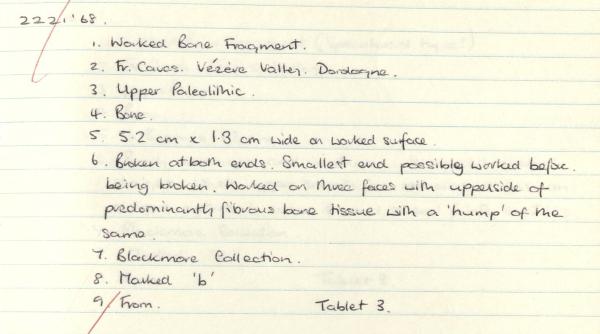 222,'68.
1. Worked Bone Fragment.
2. Fr. Caves. Vézève Valley. Dordogne.
3. Upper Paleolithic.
4. Bone.
5. 5.2 cm x 1.3 cm wide on worked surface.
6. Broken at both ends. Smallest end possibly worked before.
being broken. Worked on three faces with upperside of
predominantly fibrous bone tissue with a 'hump' of the
same.
7. Blackmore Collection.
8. Marked 'b'
9. From. Tablet 3.